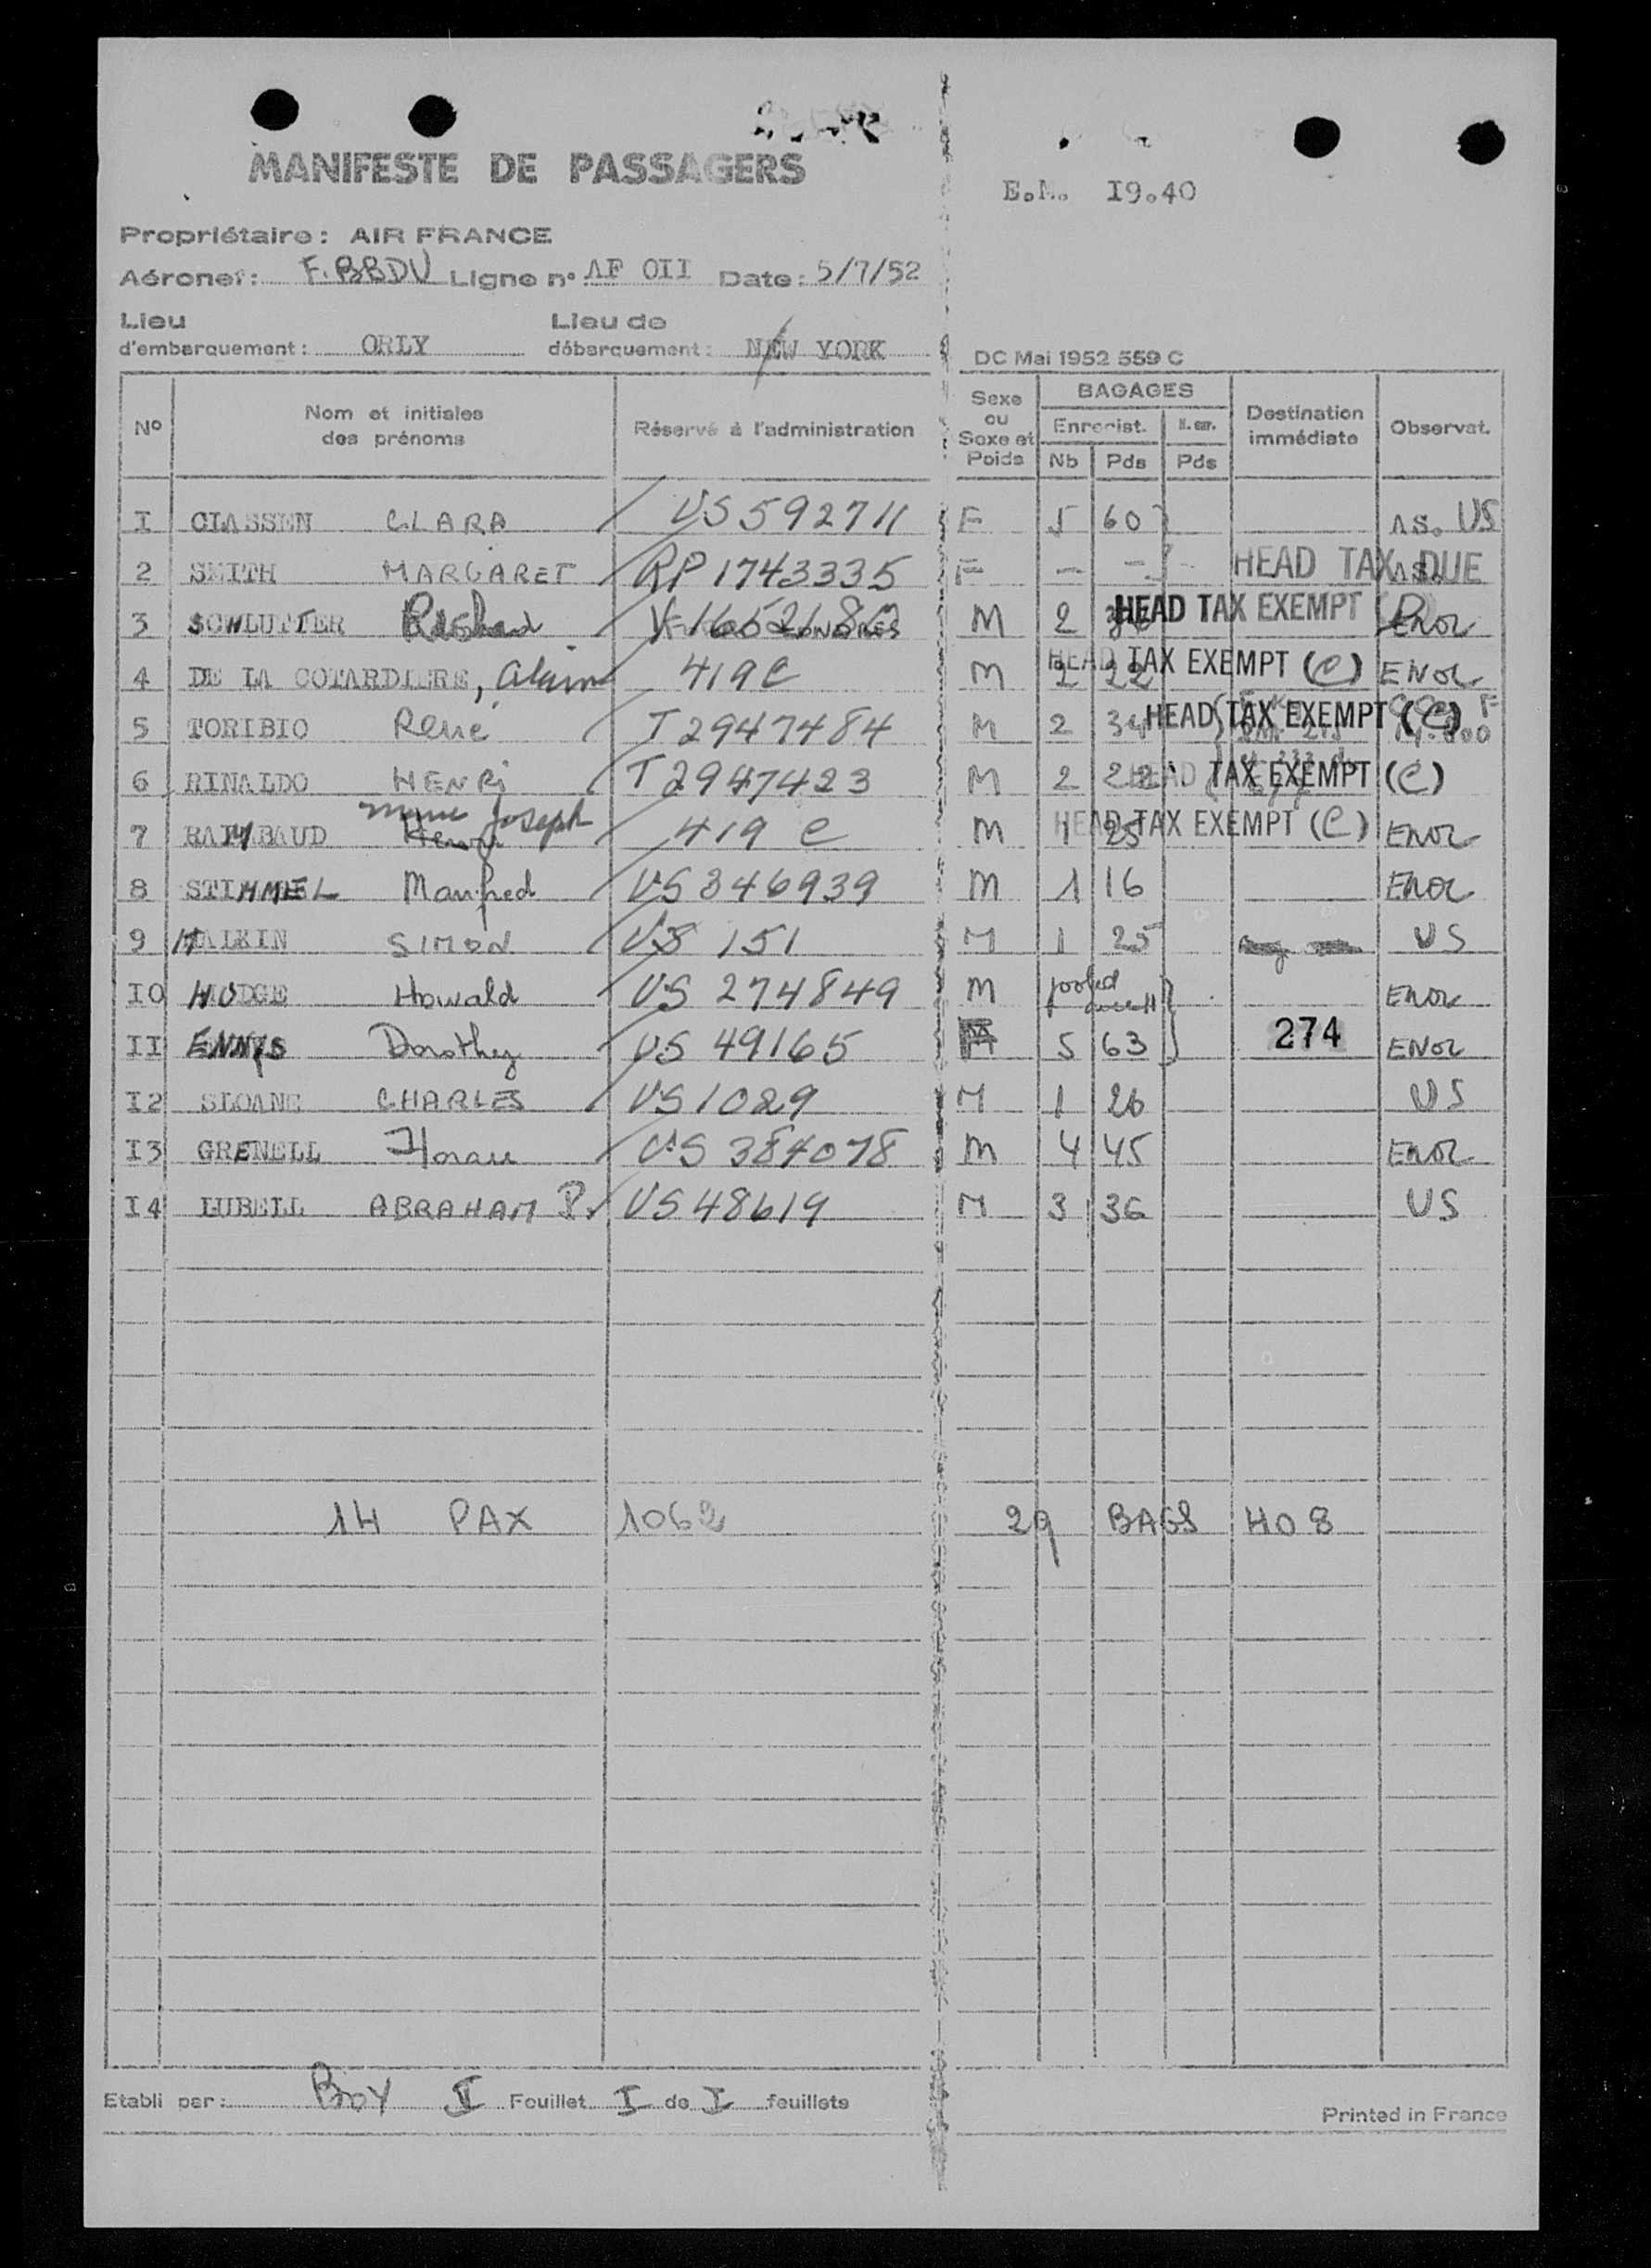 MANIFESTE DE PASSAGERS
E.M. I9.40
Propriétaire: AIR FRANCE
Aéronef: F.BBDU Ligne n° AF OII Date: 5/7/52
Lieu d'embarquement: ORLY Lieu de débarquement: NEW YORK
DC Mai 1952 559 C
N° Nom et initiales des prénoms Réservé à l'administration Sexe ou Sexe et Poids BAGAGES Enregist. Nb Pds N. enr. Pds Destination immédiate Observat.
I CLASSEN CLARA US 592711 F 5 60 AS. US
2 SMITH MARGARET RP 1743335 F - - - HEAD TAX DUE
3 SCHLUTTER M 2 HEAD TAX EXEMPT Enor
4 DE LA COTARDIERE, Alain 419 C M 2 22 HEAD TAX EXEMPT (C) ENor
5 TORIBIO René T 2947484 M 2 34 HEAD TAX EXEMPT (C)
6 RINALDO HENRI T 2947423 M 2 22 HEAD TAX EXEMPT (C)
7 RAIMBAUD Joseph 419 C M 1 25 HEAD TAX EXEMPT (C) ENor
8 STIMMEL Manfred US 346939 M 1 16 Enor
9 HALKIN SIMON US 151 M 1 25 US
IO HODGE Howald US 274849 M pooled Enor
II ENNIS Dorothy US 49165 5 63 274 ENor
I2 SLOANE CHARLES US 1029 M 1 26 US
I3 GRENELL Horace US 384078 M 4 45 Enor
I4 LUBELL ABRAHAM P. US 48619 M 3 36 US
14 PAX 1062 29 BAGS 408
Etabli par: BOY II Feuillet I de I feuillets
Printed in France